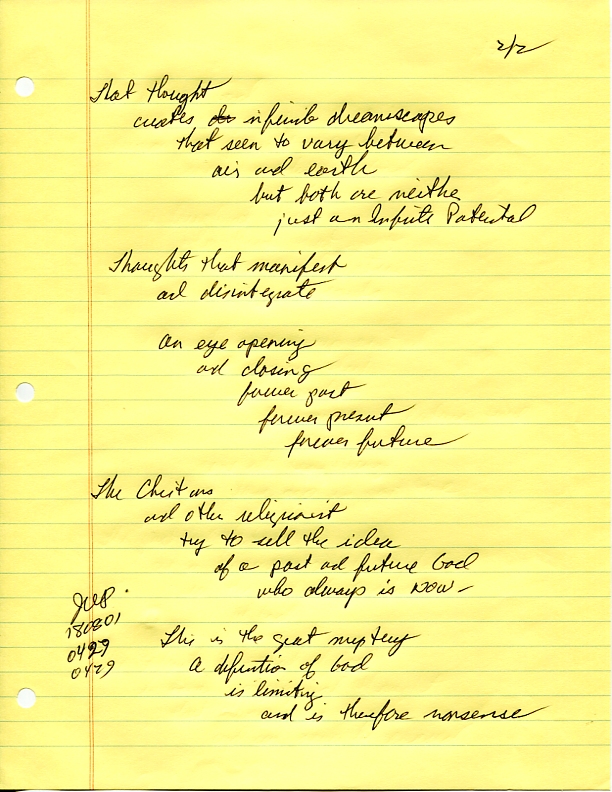 2/2
That thought
creates infinite dreamscapes
that seen to vary between
air and earth
but both are neither
just an Infinite Potential
Thoughts that manifest
and disintegrate
an eye opening
and closing
forever past
forever present
forever future
The Christians
and other religionist
try to sell the idea
of a past and future God
who always is NOW-
JWB
180801
0429
0429
This is the great mystery
A definition of God
is limiting
and is therefore nonsense